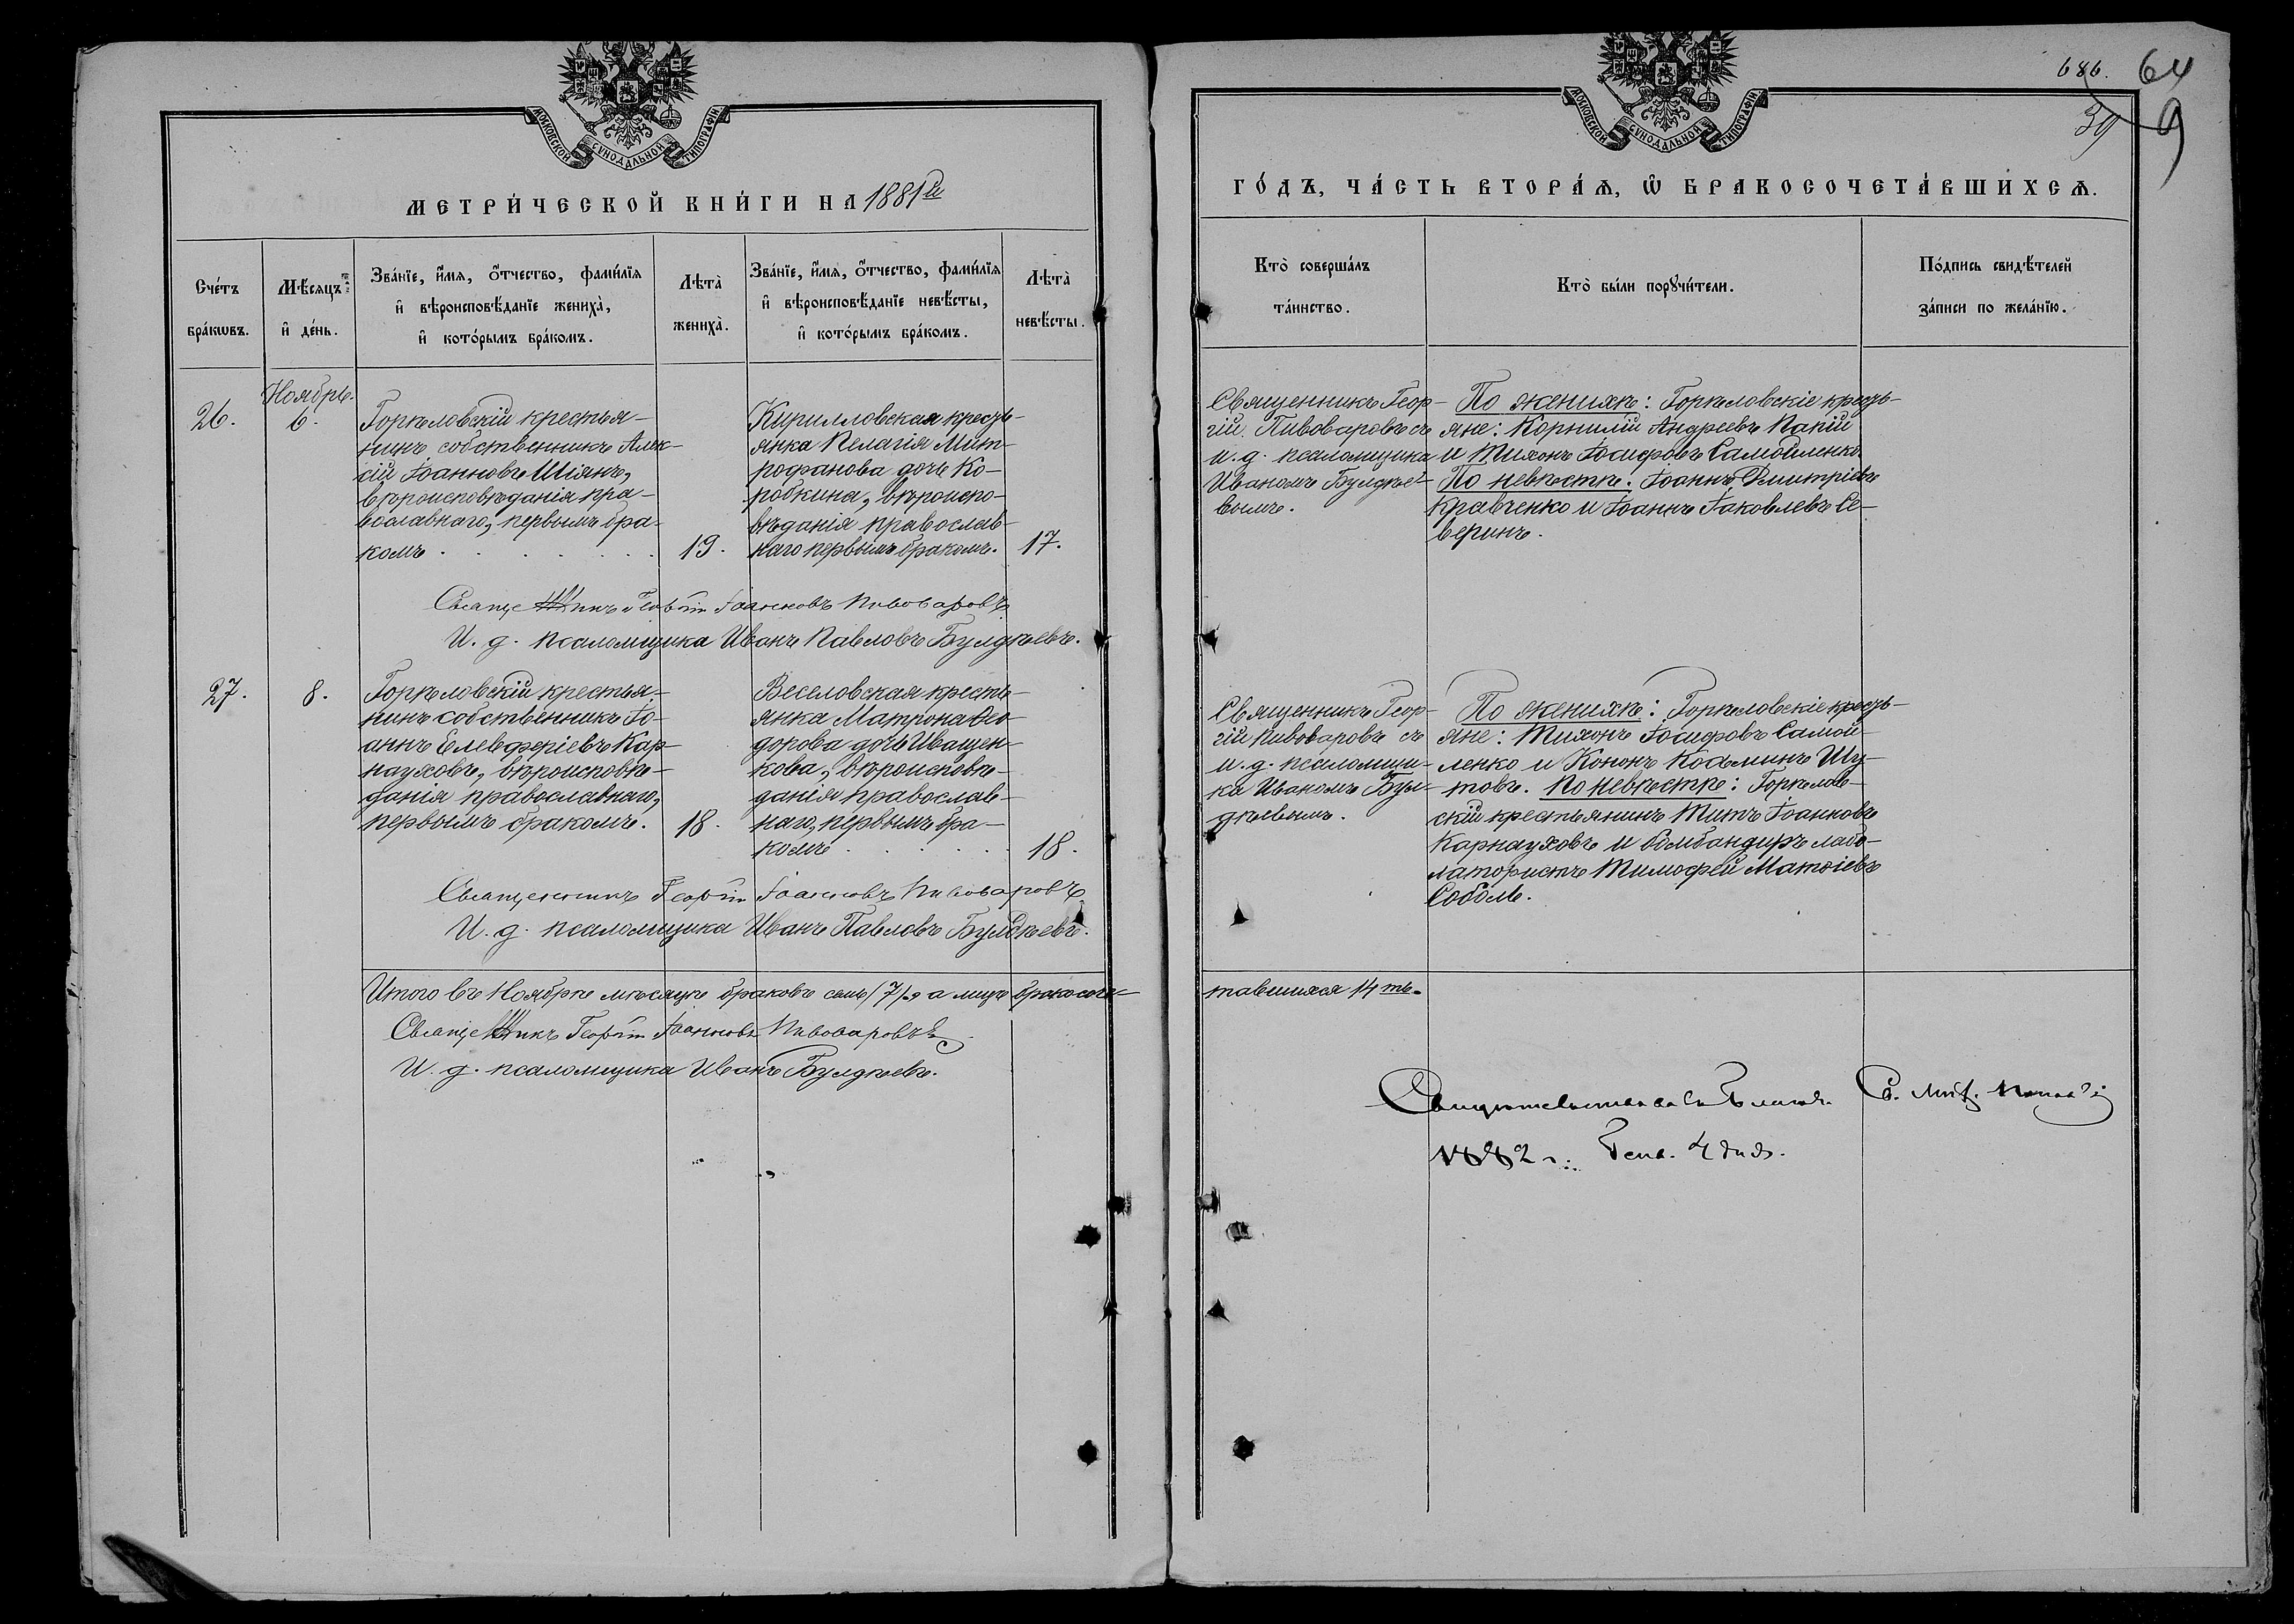 МОСКОВСКОЙ СѴНОДАЛЬНОЙ ТИПОГРАФІИ
МЕТРИ́ЧЕСКОЙ КНИ́ГИ НА 1881й
Сче́тъ бра́кѡвъ.
Мѣ́сяцъ и҆ де́нь.
Зва́нїе, и҆́мѧ, ѻ҆́тчество, фами́лїѧ
и҆ вѣроисповѣ́данїе жениха̀,
и҆ кото́рымъ бра́комъ.
Лѣта̀
жениха̀.
Зва́нїе, и҆́мѧ, ѻ҆́тчество, фами́лїѧ
и҆ вѣроисповѣ́данїе невѣ́сты,
и҆ кото́рымъ бра́комъ.
Лѣта̀
невѣ́сты.
Ноябрь.
26.
6.
Горѣловскій крестья-
нинъ собственникъ Алек-
сій Іоанновъ Шіянъ,
вѣроисповѣданія пра-
вославнаго, первымъ бра-
комъ
19.
Кирилловская кресть-
янка Пелагія Мит-
рофанова дочь Ко-
робкина, вѣроиспо-
вѣданія православ-
наго первымъ бракомъ.
17.
Священникъ Георгій Іоанновъ Пивоваровъ
И. д. псаломщика Иванъ Павловъ Булдѣевъ.
27.
8.
Горѣловскій крестья-
нинъ собственникъ Іо-
аннъ Елевферіевъ Кар-
науховъ, вѣроисповѣ-
данія православнаго,
первымъ бракомъ.
18.
Веселовская кресть-
янка Матрона Ѳео-
дорова дочь Иващен-
кова, вѣроисповѣ-
данія православ-
наго, первымъ бра-
комъ
18.
Священникъ Георгій Іоанновъ Пивоваровъ
И. д. псаломщика Иванъ Павловъ Булдѣевъ.
Итого въ Ноябрѣ мѣсяцѣ браковъ семь /7/ а лицъ бракосоче-
Священникъ Георгій Іоанновъ Пивоваровъ
И. д. псаломщика Иванъ Булдѣевъ.
686. 64
39 9
МОСКОВСКОЙ СѴНОДАЛЬНОЙ ТИПОГРАФІИ
ГО́ДЪ, ЧА́СТЬ ВТОРА́Ѧ, Ѡ҆ БРАКОСОЧЕТА́ВШИХСѦ.
Кто̀ соверша́лъ
та́инство.
Кто̀ бы́ли порꙋчи́тели.
По́дпись свидѣ́телей
за́писи по жела́нїю.
Священникъ Геор-
гій Пивоваровъ съ
и. д. псаломщика
Иваномъ Булдѣе-
вымъ.
По женихѣ: Горѣловскіе кресть-
яне: Корнилій Андреевъ Папій
и Тихонъ Іосифовъ Самойленко.
По невѣстѣ: Іоаннъ Димитріевъ
Кравченко и Іоаннъ Іаковлевъ Се-
веринъ.
Священникъ Геор-
гій Пивоваровъ съ
и. д. псаломщи-
ка Иваномъ Бул-
дѣевымъ.
По женихѣ: Горѣловскіе кресть-
яне: Тихонъ Іосифовъ Самой-
ленко и Кононъ Косьминъ Шу-
товъ. По невѣстѣ: Горѣлов-
скій крестьянинъ Титъ Іоанновъ
Карнауховъ и бомбандиръ лабо-
латористъ Тимофей Матѳіевъ
Соболь.
тавшихся 14ть.
Свидѣтельствовалъ Благоч.
1882 г. Генв. 4 дня.